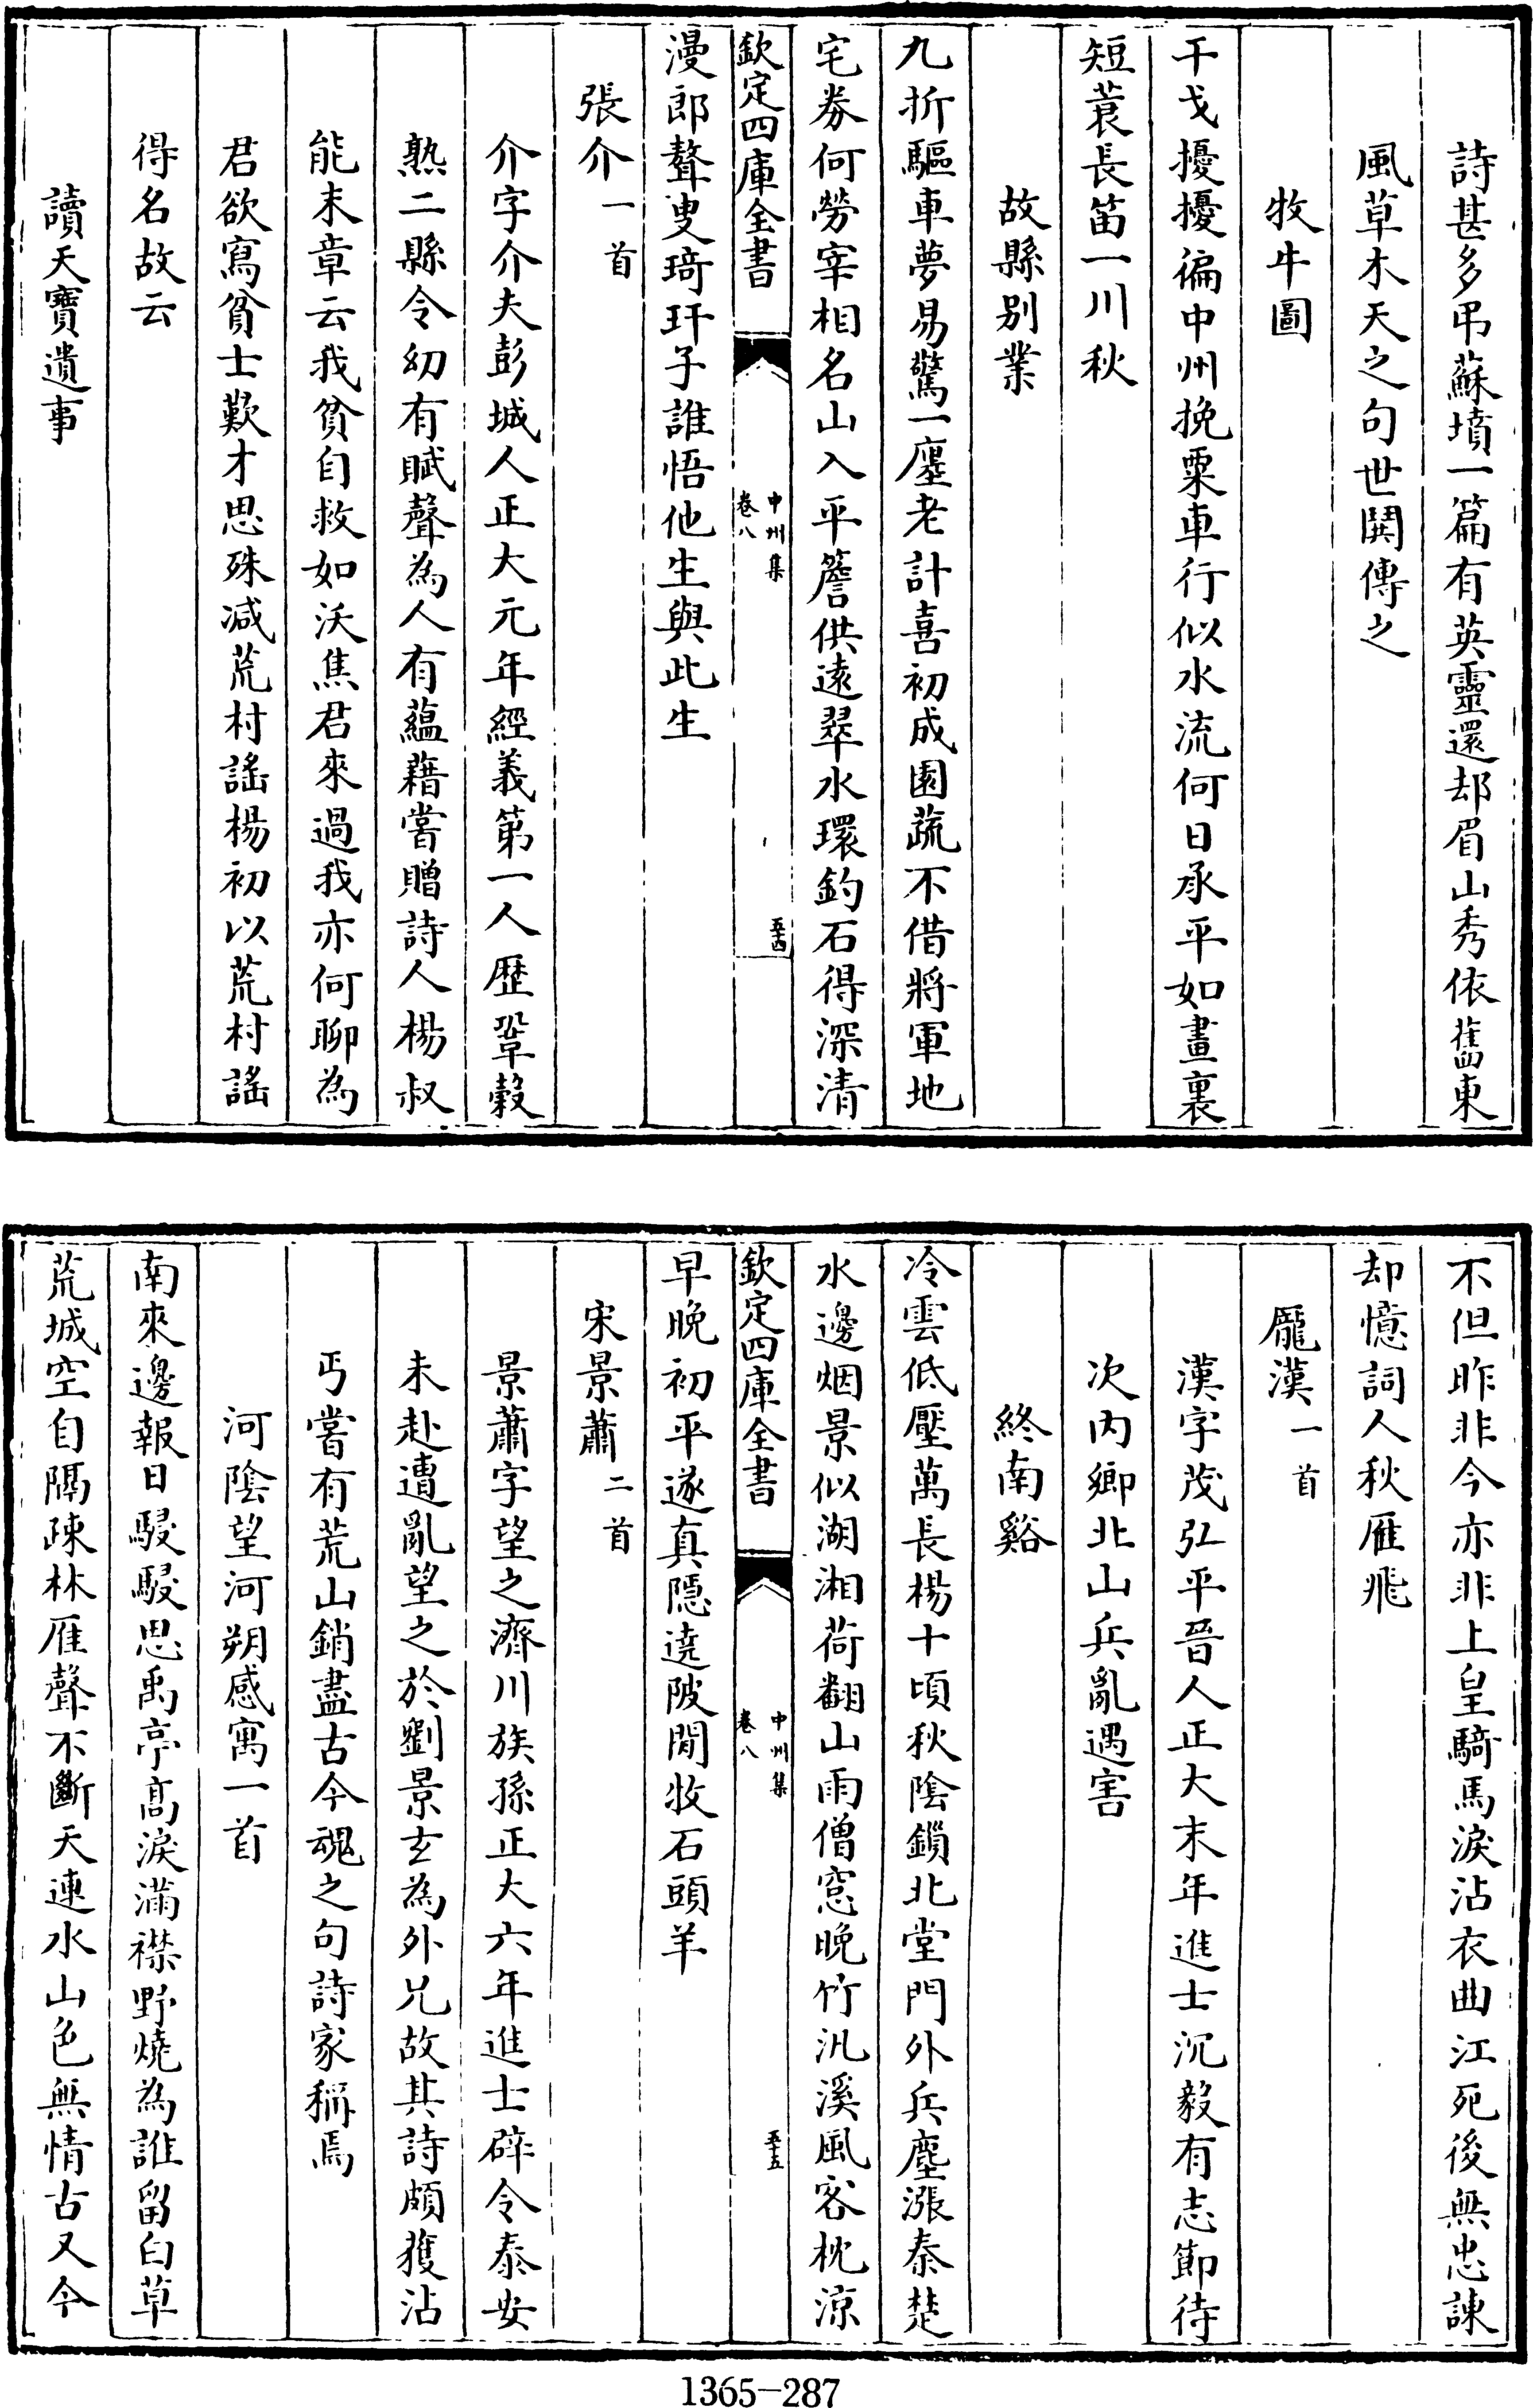 詩甚多吊蘇墳一篇有英靈還却眉山秀依舊東
風草木天之句世鬨傳之
牧牛圖
干戈擾擾徧中州挽粟車行似水流何日承平如畫裏
短蓑長笛一川秋
故縣别業
九折驅車夢易驚一廛老計喜初成園蔬不借將軍地
宅券何勞宰相名山入平簷供遠翠水環釣石得深清
欽定四庫全書
中州集
卷八
五十四
漫郎聱叟琦玕子誰悟他生與此生
張介一首
介字介夫彭城人正大元年經義第一人歴鞏穀
熟二縣令幼有賦聲為人有蘊藉嘗贈詩人楊叔
能末章云我貧自救如沃焦君來過我亦何聊為
君欲寫貧士歎才思殊减荒村謠楊初以荒村謠
得名故云
讀天寶遺事
不但昨非今亦非上皇騎馬淚沾衣曲江死後無忠諫
却憶詞人秋雁飛
龎漢一首
漢字茂弘平晉人正大末年進士沉毅有志節待
次内鄉北山兵亂遇害
終南谿
冷雲低壓萬長楊十頃秋陰鎻北堂門外兵塵漲秦楚
水邊烟景似湖湘荷翻山雨僧窓晚竹汎溪風客枕涼
欽定四庫全書
中州集
卷八
五十五
早晚初平遂真隱遶陂閒牧石頭羊
宋景蕭二首
景蕭字望之濟川族孫正大六年進士辟令泰安
未赴遭亂望之於劉景玄為外兄故其詩頗獲沾
丐嘗有荒山銷盡古今魂之句詩家稱焉
河陰望河朔感寓一首
南來邊報日駸駸思禹亭髙淚滿襟野燒為誰留白草
荒城空自隔疎林雁聲不斷天連水山色無情古又今
1365-287